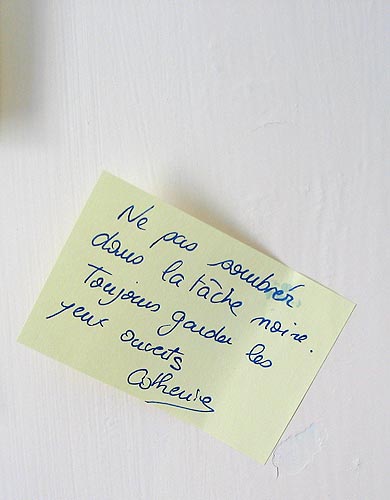 Ne pas sombrer
dans la tâche noire.
Toujours garder les
yeux ouverts
Catherine